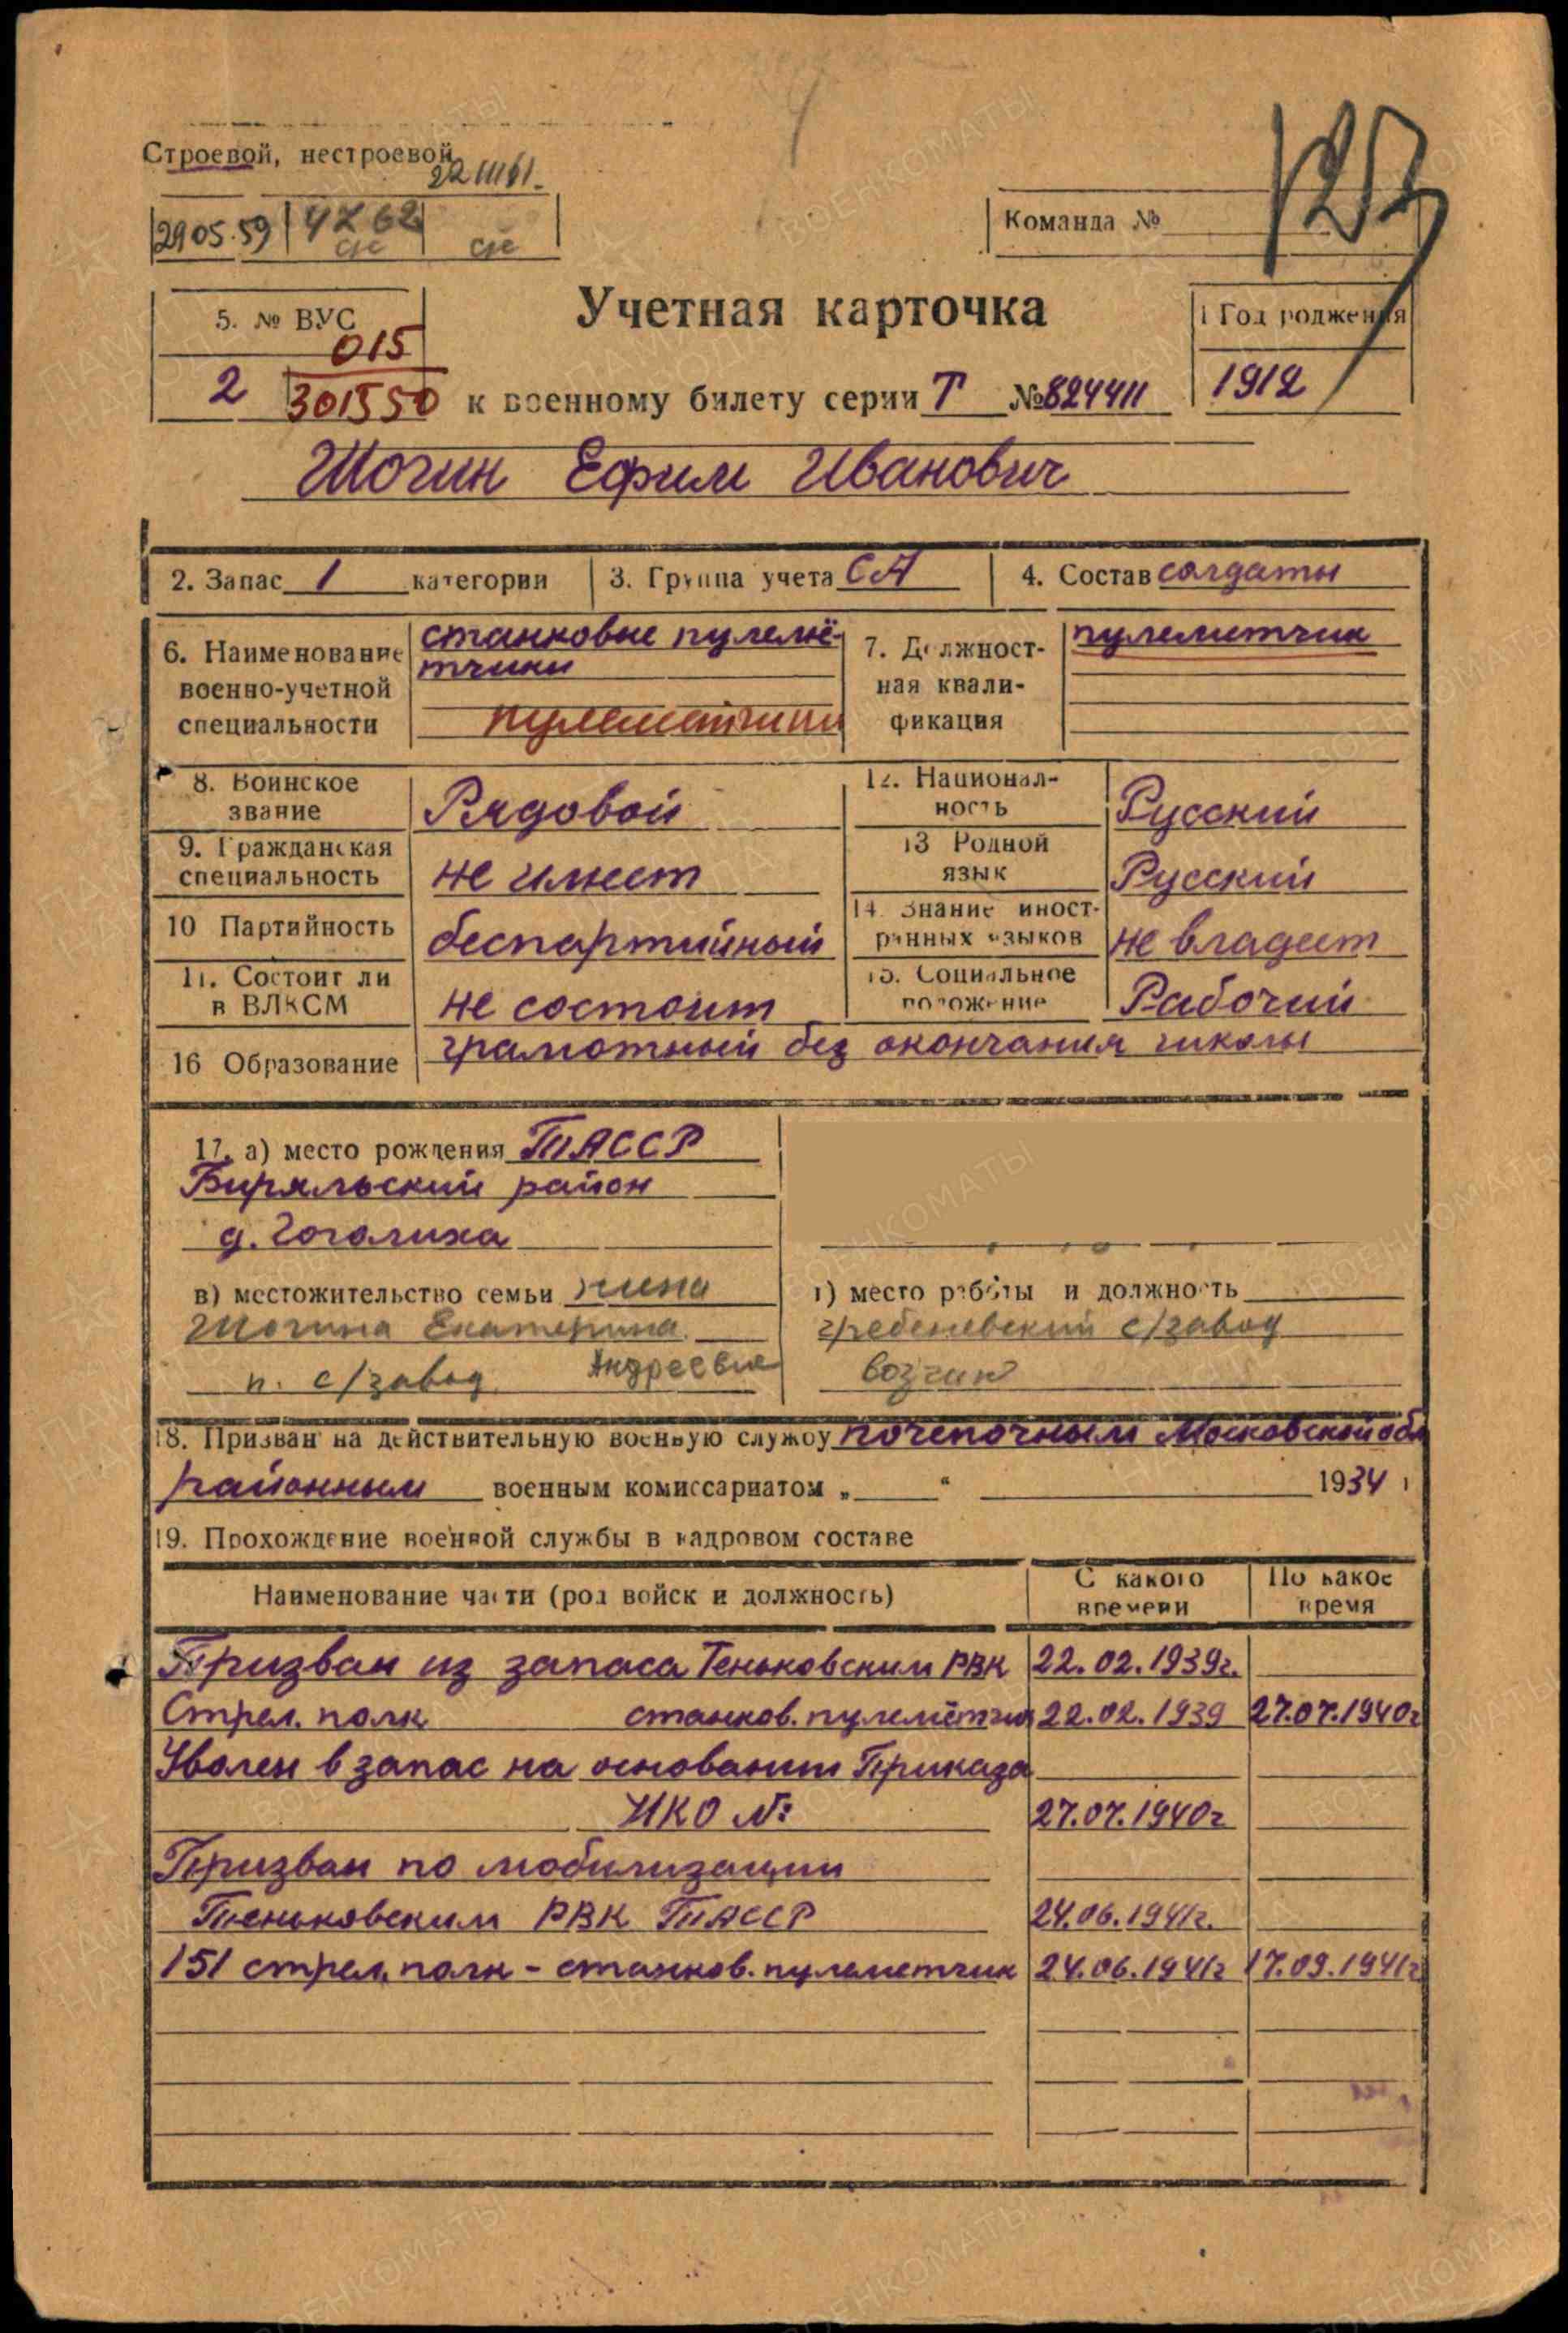 Строевой, нестроевой
22 III 61.
29 05.59
Команда №
5. № ВУС
015
2 301550
Учетная карточка
к военному билету серии Т № 824411
1 Год рождения
1912
Шогин Ефим Иванович
2. Запас 1 категории
3. Группа учета СА
4. Состав солдаты
6. Наименование военно-учетной специальности
станковые пулемё-
тчики
пулеметчики
7. Должност-
ная квали-
фикация
пулеметчик
8. Воинское звание Рядовой
12. Националь-
ность Русский
9. Гражданская специальность не имеет
13 Родной язык Русский
10 Партийность беспартийный
14. Знание иност-
ранных языков не владеет
11. Состоит ли в ВЛКСМ не состоит
15. Социальное положение Рабочий
16 Образование грамотный без окончания школы
17. а) место рождения ТАССР
район
д. Гоголиха
в) местожительство семьи жена
Шогина Екатерина
Андреевна
п. с/завод
г) место работы и должность
гребеневский с/завод
возчик
18. Призван на действительную военную службу Московской обл
районным военным комиссариатом „ “ 1934 г
19. Прохождение военной службы в кадровом составе
Наименование части (род войск и должность) С какого времени По какое время
Призван из запаса Теньковским РВК 22.02.1939г.
Стрел. полк станков. пулемётчик 22.02.1939 27.07.1940г
Уволен в запас на основании Приказа
НКО № 27.07.1940г
Призван по мобилизации
Теньковским РВК ТАССР 24.06.1941г.
151 стрел. полк - станков. пулеметчик 24.06.1941г 17.09.1941г